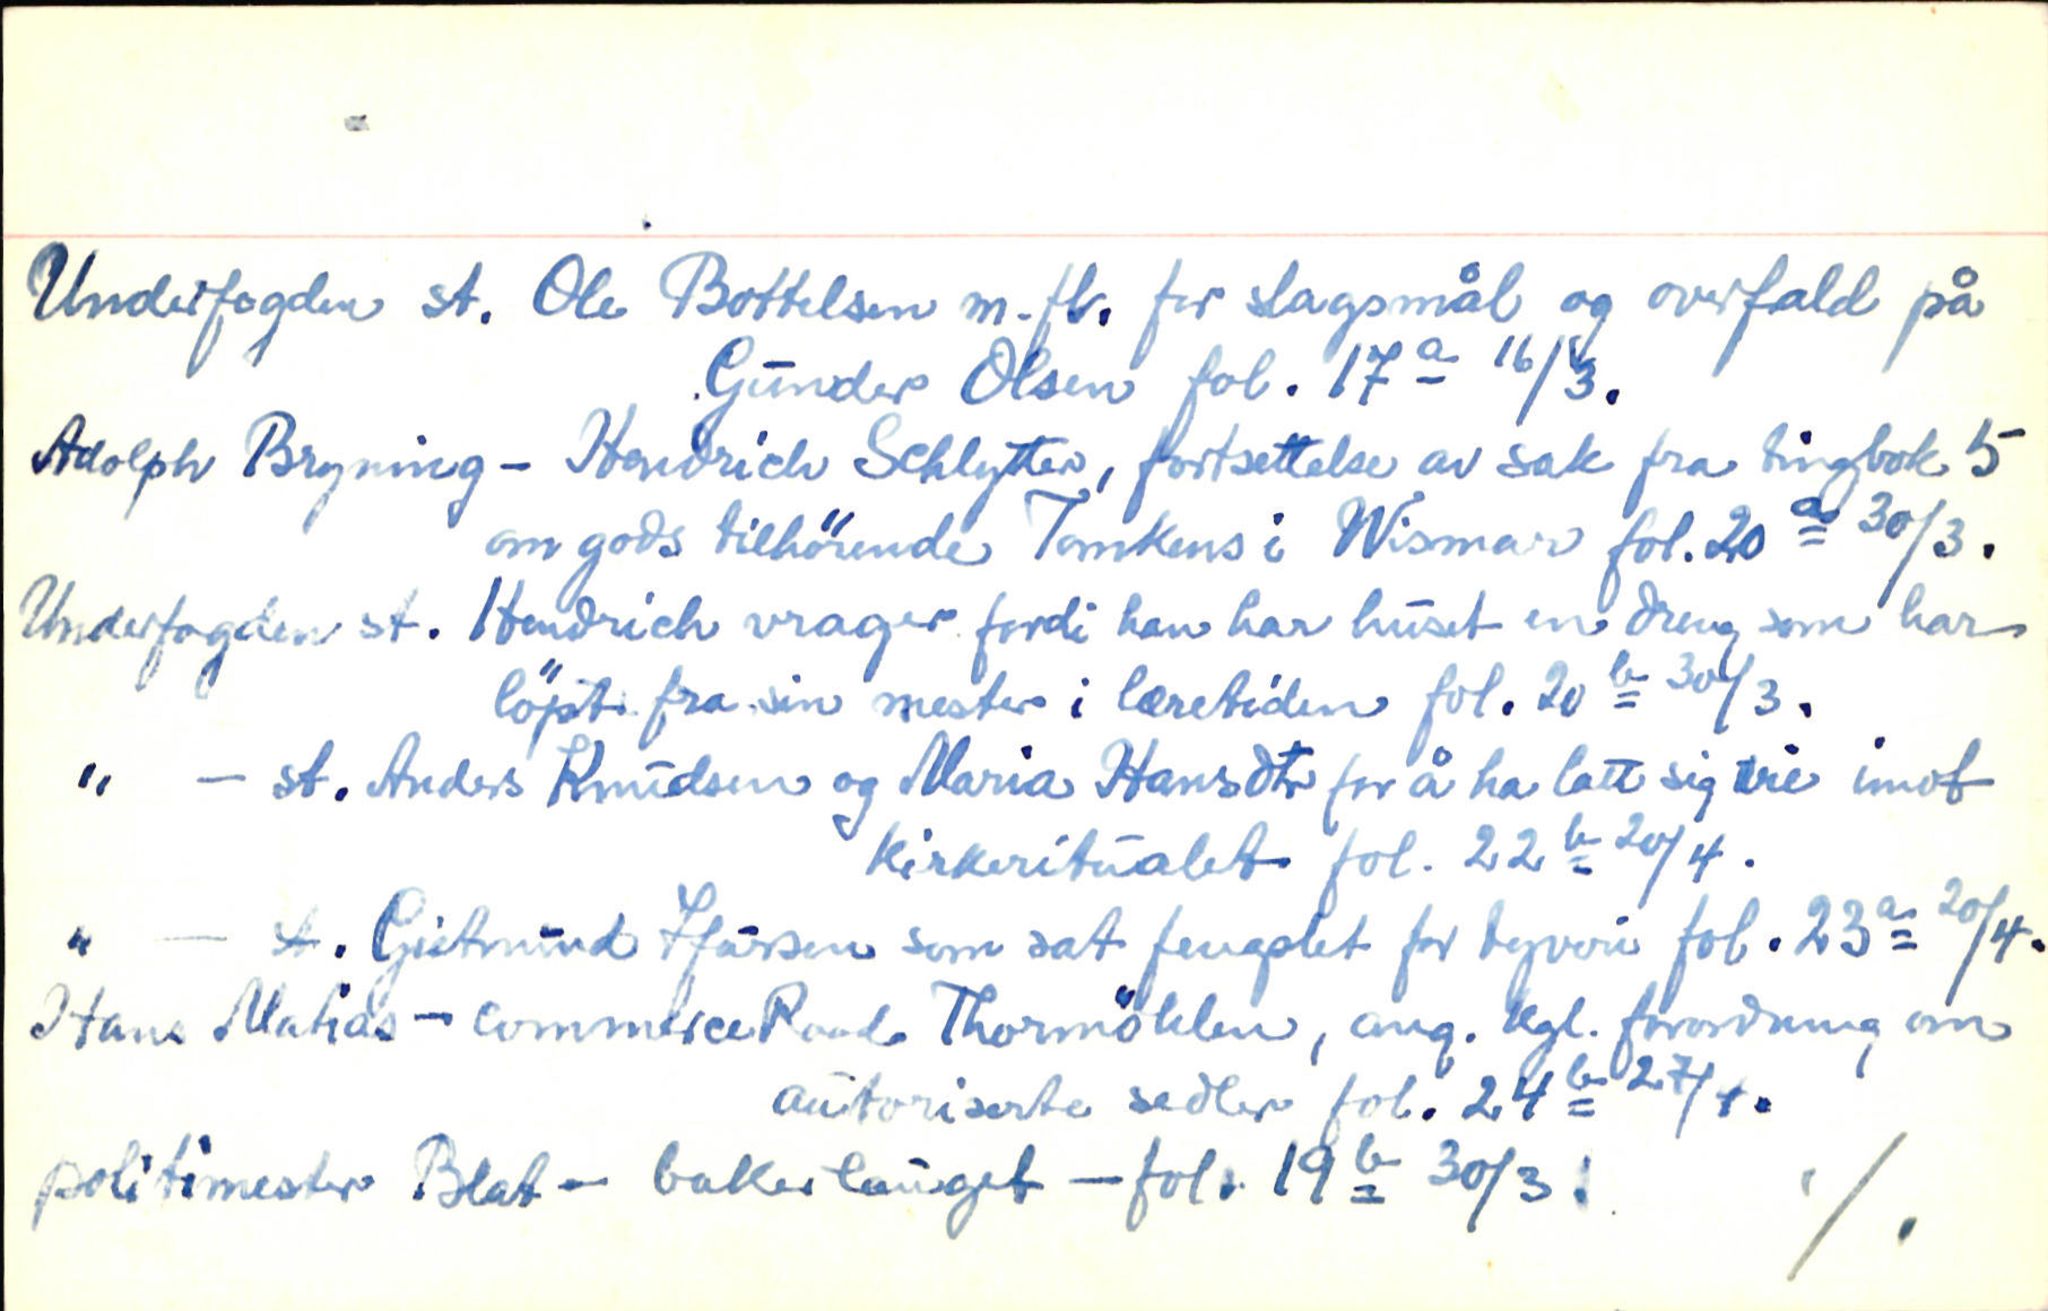 Underfogden st. Ole Bottelsen m. fl. for slagsmål og overfald på
Gunder Olsen fol. 17a 16/3.
Adolph Bryning - Hendrich Schlytter, fortsettelse av sak fra tingbok 5
om gods tilhörende Tomkens i Wismar fol. 20a 30/3.
Underfogden st. Hendrich vrager fordi han har huset en dreng som har
löpt fra sin mester i læretiden fol. 20b 30/3.
" - st. Anders Knudsen og Maria Hansdtr for å ha latt sig vie imot
kirkeritualet fol. 22b 20/4.
" - st. Gietmund som sat fengslet for tyveri fol. 23a 20/4.
Hans Matias - CommerceRaad Thormöhlen, ang. kgl. forordning om
autoriserte sedler fol. 24b 27/4.
politimester Blat - bakerlauget - fol. 19b 30/3.
./.